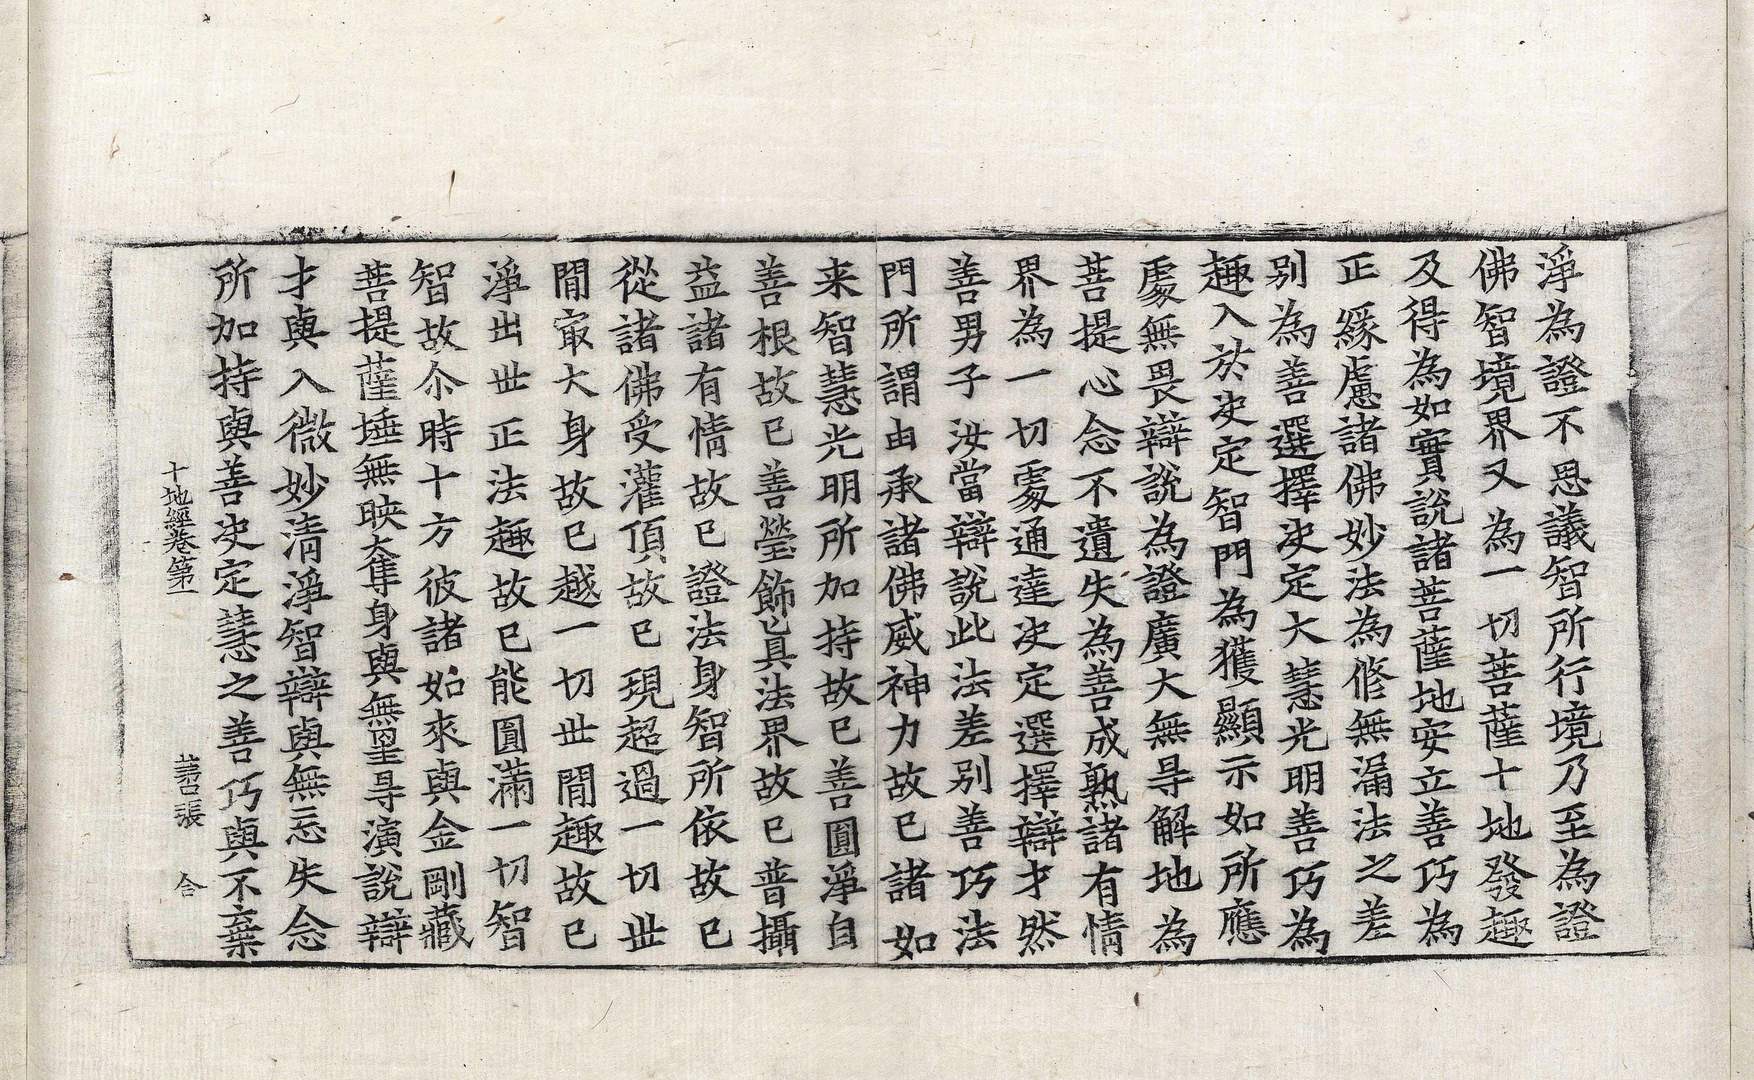 淨為證不思議智所行境乃至為證
佛智境界又為一切菩薩十地發趣
及得為如實說諸菩薩地安立善巧為
正緣慮諸佛妙法為修無漏法之差
別為善選擇决定大慧光明善巧為
趣入於决定智門為獲顯示如所應
處無畏辯說為證廣大無㝵解地為
菩提心念不遺失為善成熟諸有情
界為一切處通達决定選擇辯才然
善男子汝當辯說此法差別善巧法
門所謂由承諸佛威神力故已諸如
来智慧光明所加持故已善圓淨自
善根故已善瑩飾眞法界故已普攝
益諸有情故已證法身智所依故已
從諸佛受灌頂故已現超過一切世
間㝡大身故已越一切世間趣故已
淨出世正法趣故已能圓滿一切智
智故尒時十方彼諸如來與金剛藏
菩提薩埵無映奪身與無罣㝵演說辯
才與入微妙清淨智辯與無忘失念
所加持與善决定慧之善巧與不棄
十地經卷第一 張 合